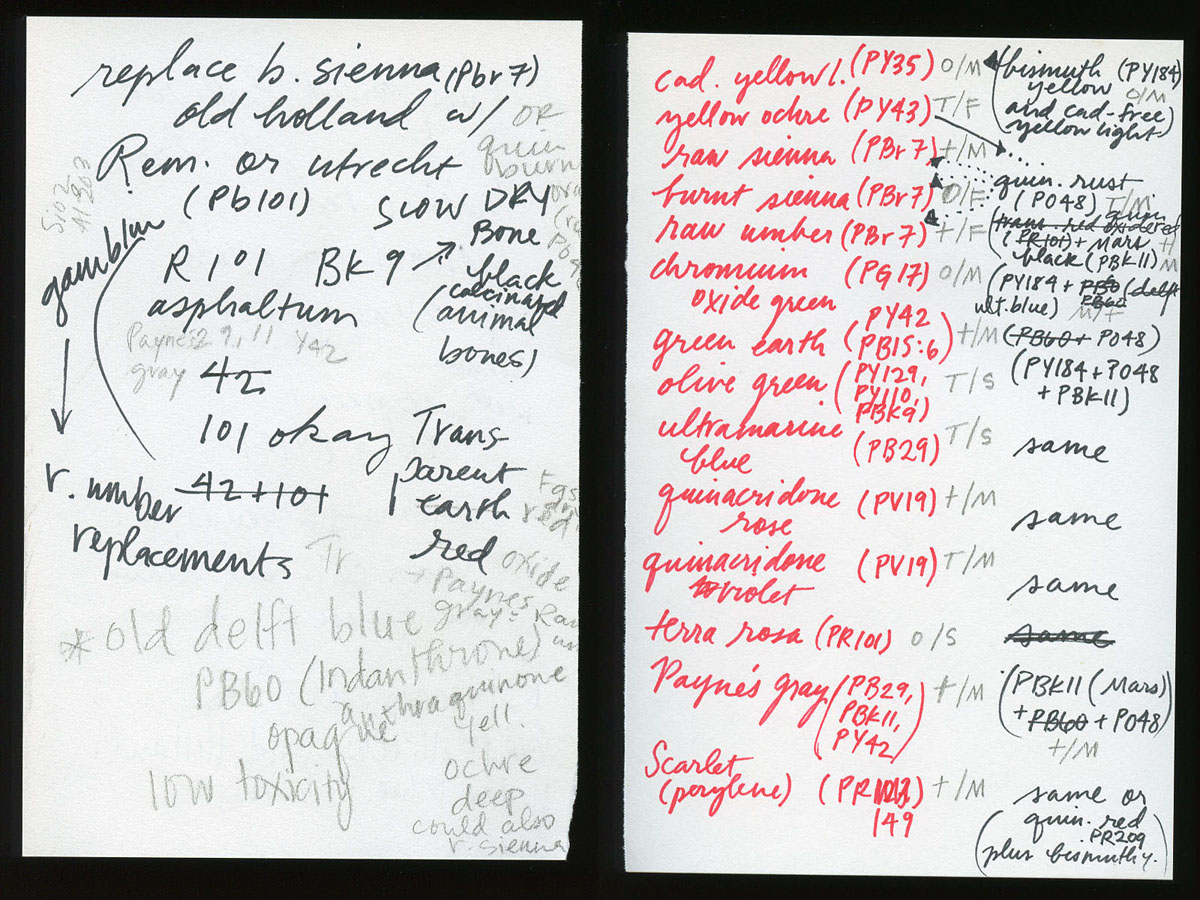 replace b. sienna (Pbr7)
old holland w/ OR
Rem. or utrecht quin
burn
(Pb101) SLOW DRY
gamblin
Bone
R 101 BK 9 → black
asphaltum (calcinated
animal
bones)
Paynes 29, 11 Y42
gray 42
101 okay Trans-
parent
r. umber 42+101 earth
replacements red
Tr oxide
+ Paynes
gray = Raw
* old delft blue
PB60 (Indanthrone)
anthraquinone
opaque yell.
low toxicity ochre
deep
could also
r. sienna
cad. yellow l. (PY35) O/M
yellow ochre (PY43) T/F
raw sienna (PBr7) +/M
burnt sienna (PBr7) O/F
raw umber (PBr7) +/F
chromium (PG17) O/M
oxide green
green earth (PY42
PB15:6) +/M
olive green (PY129,
PY110,
PBK9) T/S
ultramarine
blue (PB29) T/S
quinacridone (PV19) +/M
rose
quinacridone (PV19) T/M
violet
terra rosa (PR101) O/S
Payne's gray (PB29,
PBK11,
PY42) +/M
Scarlet
(perylene) (PR
149) +/M
(bismuth (PY184)
yellow O/M
and cad-free)
yellow light)
quin. rust
(PO48) T/M
(trans. red oxide red quin
(PR101) + Mars
black (PBK11) M
(PY184 + PB60 (delft
PB60
ult. blue) M/+
(PB60 + PO48)
(PY184 + PO48
+ PBK11)
same
same
same
same
(PBK11 (Mars)
+ PB60 + PO48)
+/M
same or
(quin. red
PR209
plus bismuth y.)